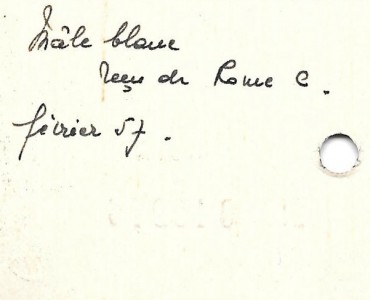 Mâle blanc
reçu de Rome C.
février 57.